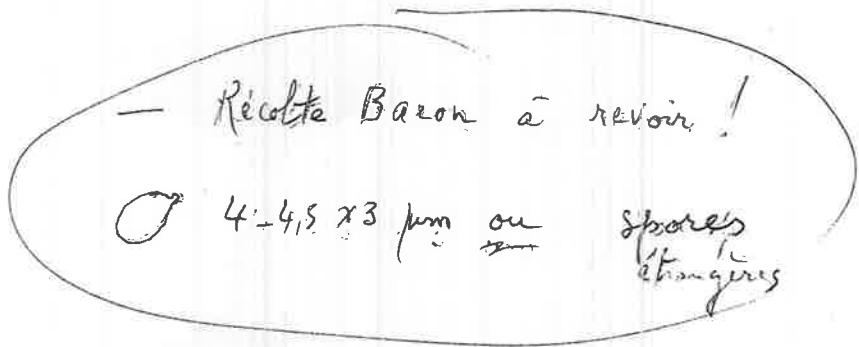 — Récolte Baron à revoir !
4-4,5 x3 µm ou spores
étrangères